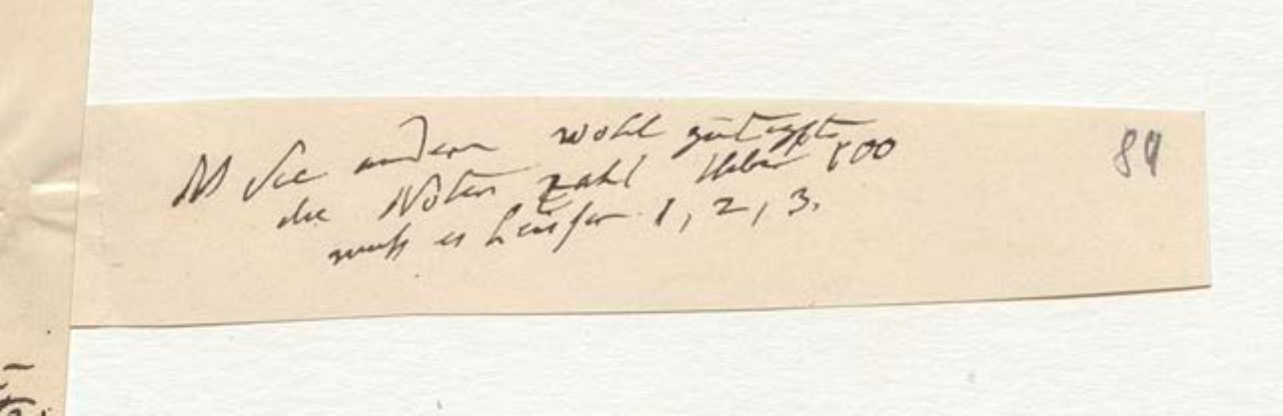 NB Sie ändern wohl gütigst
84
die Noten zahl Ueber 100
muß es heißen 1, 2, 3.